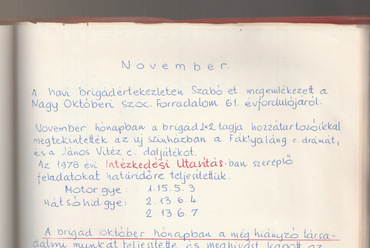 November
A havi brigádértekezleten Szabó et. megemlékezett a
Nagy Októberi Szoc. Forradalom 61. évfordulójáról.
November hónapban a brigád 2×2 tagja hozzátartozóikkal
megtekintették az új színházban a Fáklyaláng c. drámát,
és a János Vitéz c. daljátékot.
Az 1978 évi Intézkedési Utasítás-ban szereplő
feladatokat határidőre teljesítettük.
Motor gye: 1.15.5.3
Hátsóhíd gye: 2.13 6.4
2 13 6.7
A brigád október hónapban a még hiányzó társa-
dalmi munkát teljesítette és meghívást kapott az